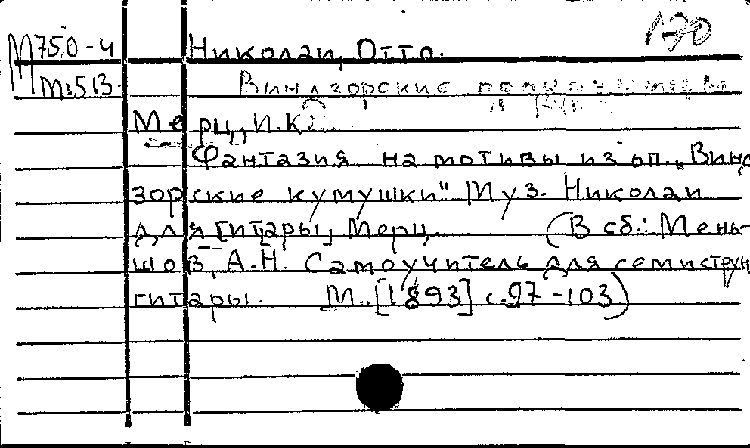 М750-4 Николаи, Отто. 170
М:513 Виндзорские
Мерц, И.К.
Фантазия на мотивы из оп. „Винд
зорские кумушки" Муз. Николаи
для гитары, Мерц. (В сб.: Мень-
шов, А.Н. Самоучитель для семиструн
гитары. М. [1893] с.97-103)